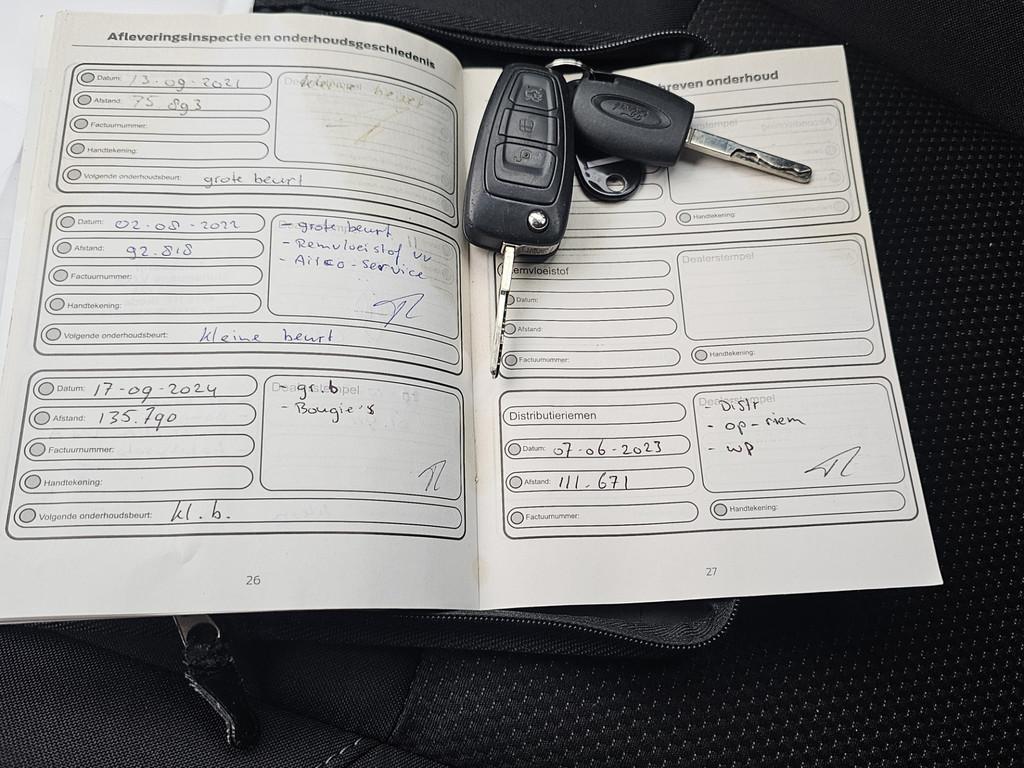 Afleveringsinspectie en onderhoudsgeschiedenis
Datum: 13-09-2021
Afstand: 75.893
Factuurnummer:
Handtekening:
Volgende onderhoudsbeurt: grote beurt
Dealerstempel
beurt
Datum: 02-08-2022
Afstand: 92.818
Factuurnummer:
Handtekening:
Volgende onderhoudsbeurt: kleine beurt
- grote beurt
- Remvloeistof vv
- Airco-Service
Datum: 17-09-2024
Afstand: 135.790
Factuurnummer:
Handtekening:
Volgende onderhoudsbeurt: kl.b.
Dealerstempel
- gr.b
- Bougie's
26
reven onderhoud
Handtekening:
emvloeistof
Datum:
Afstand:
Factuurnummer:
Dealerstempel
Handtekening:
Distributieriemen
Datum: 07-06-2023
Afstand: 111.671
Factuurnummer:
Dealerstempel
- Distr
- op-riem
- wp
Handtekening:
27
Ford